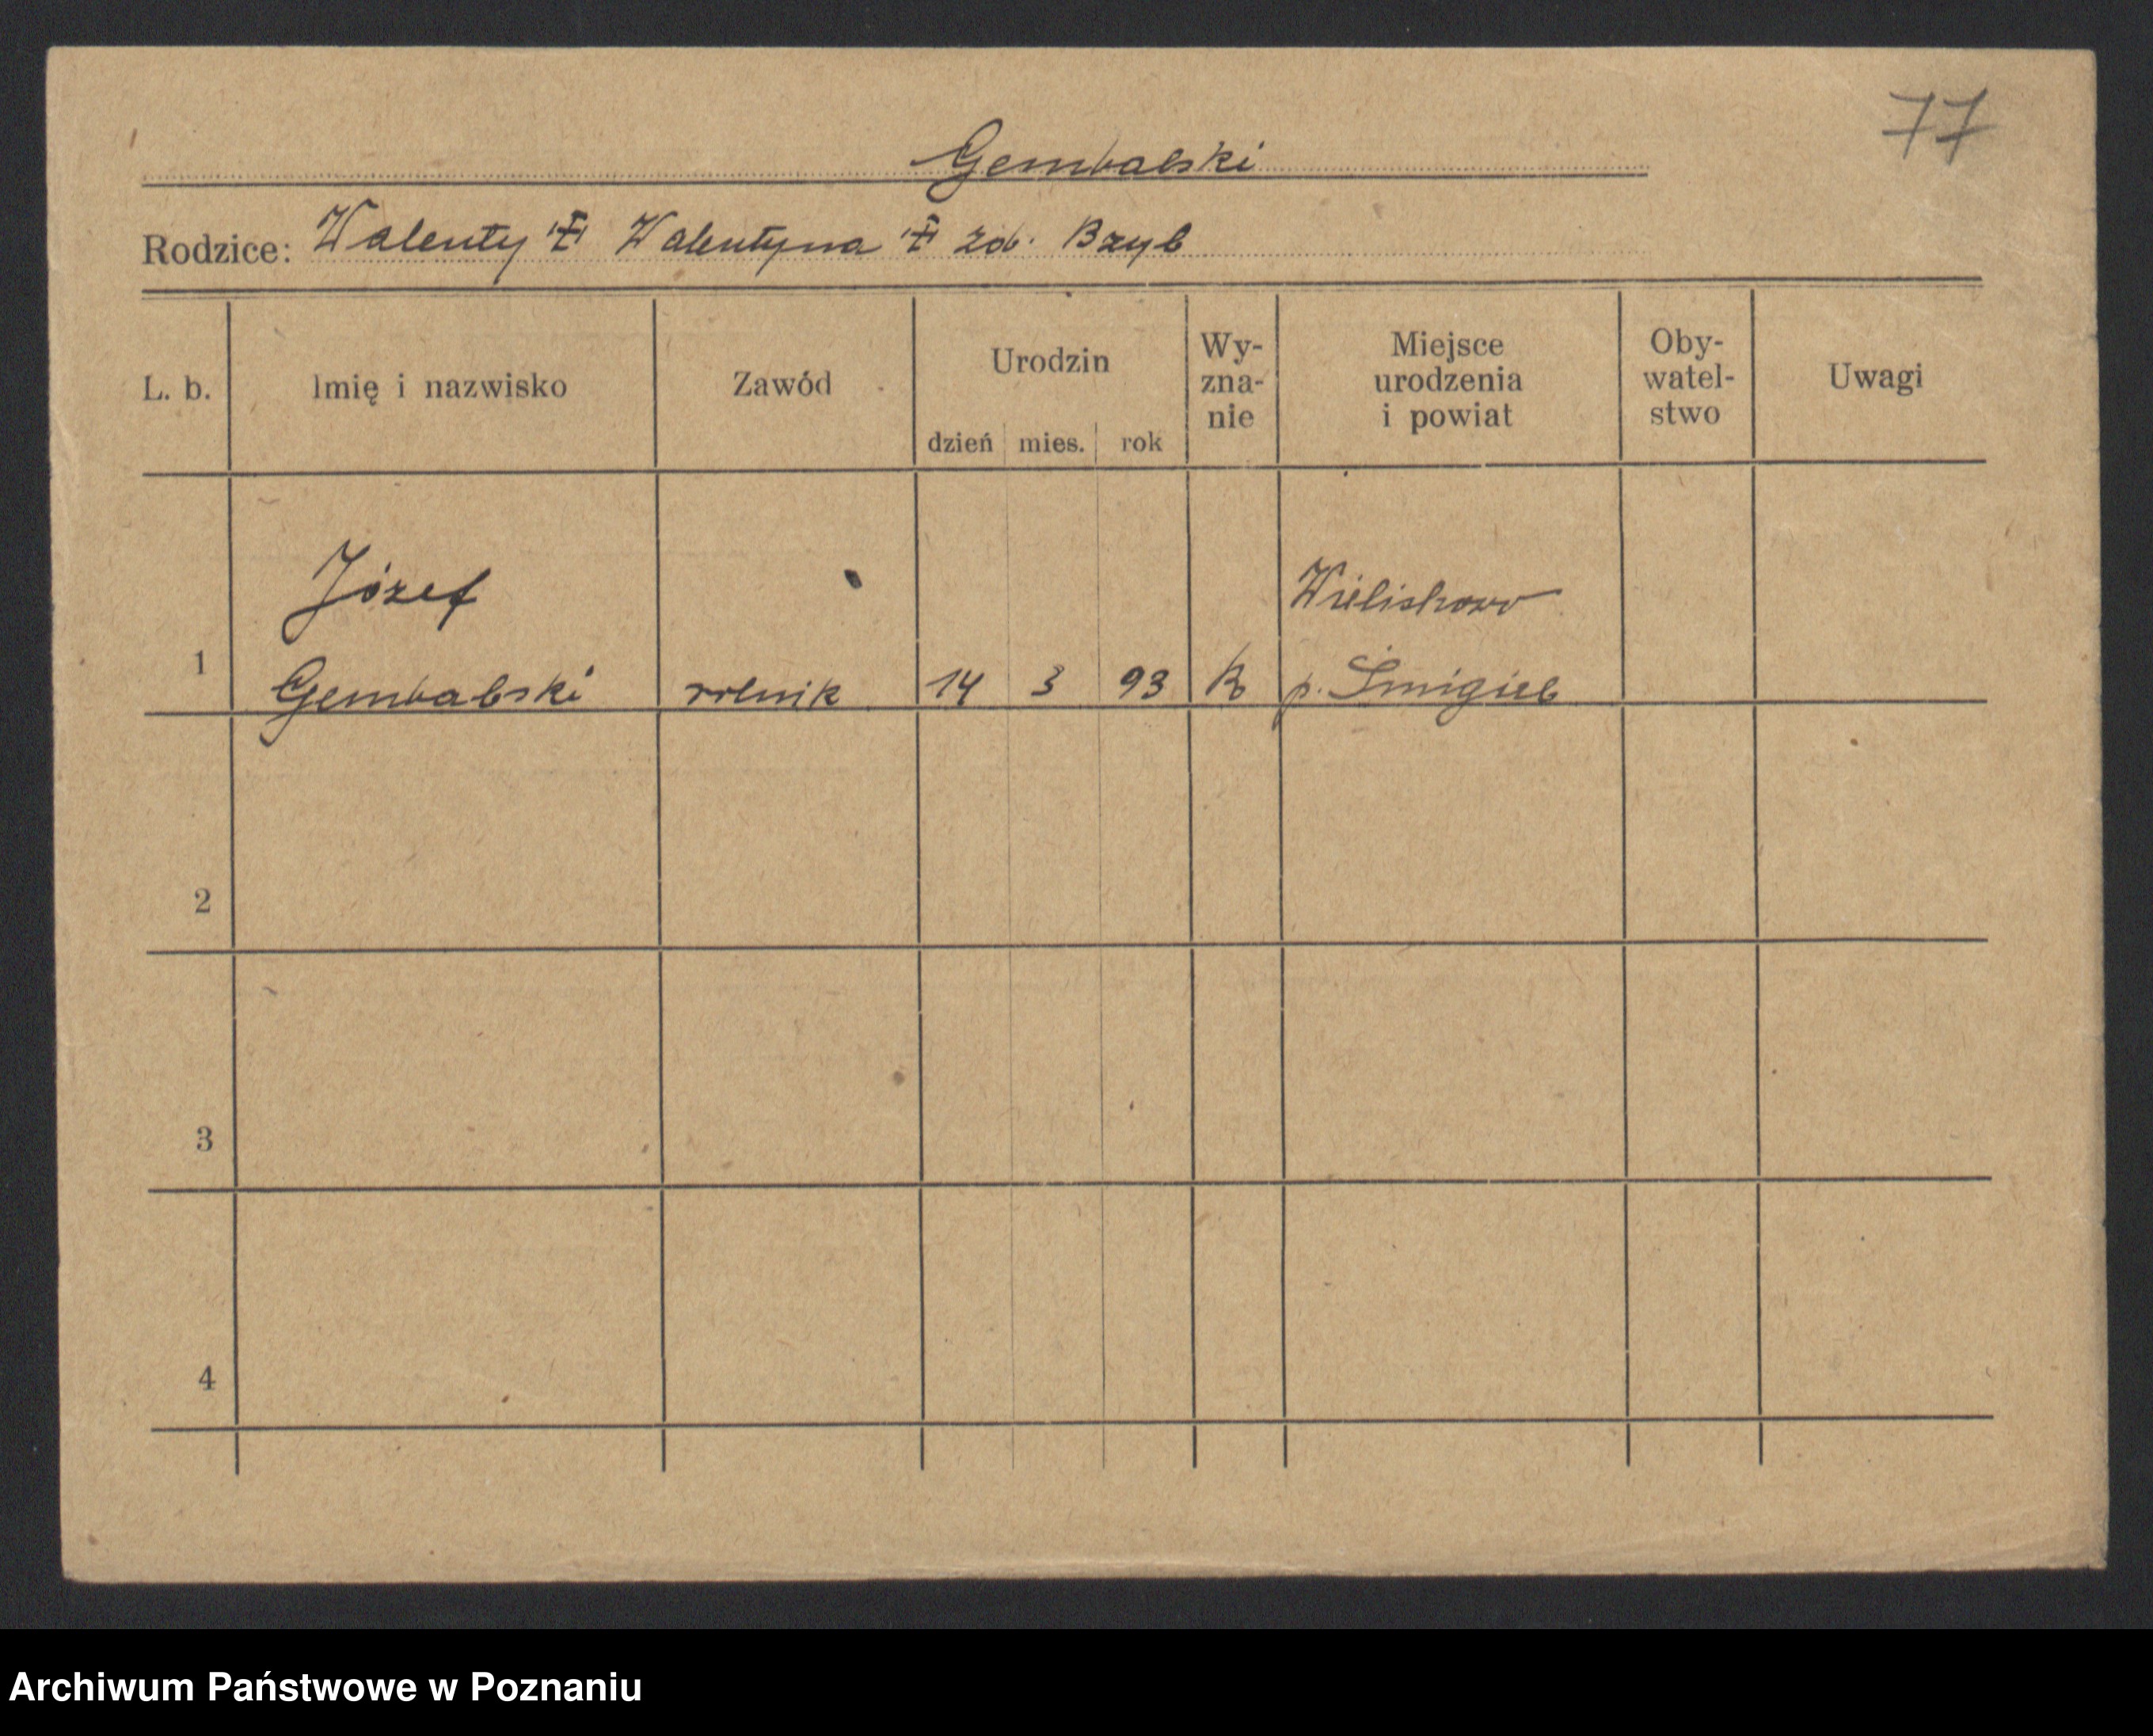 77
Gembalski
Rodzice: Walenty Walentyna zd. Bzyl
L. b.
Imię i nazwisko
Zawód
Urodzin
dzień mies. rok
Wy-
zna-
nie
Miejsce
urodzenia
i powiat
Oby-
watel-
stwo
Uwagi
Józef
Wieliskowo
1 Gembalski rolnik 14 3 93 p. Śmigiel
2
3
4
Archiwum Państwowe w Poznaniu